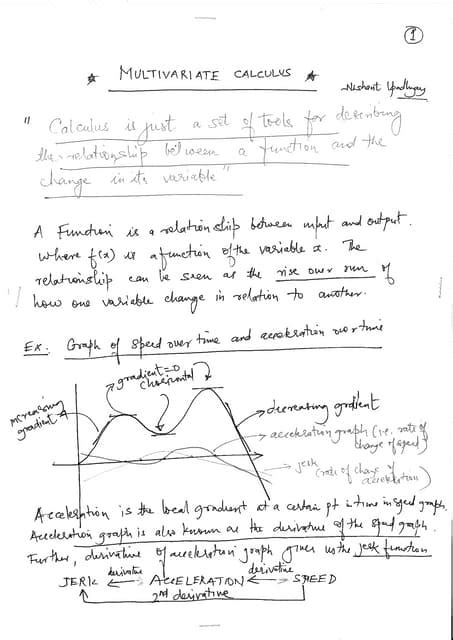 1
★ MULTIVARIATE CALCULUS ★
- Nishant Upadhyay
" Calculus is just a set of tools for describing
the relationship between a function and the
change in its variable "
A Function is a relationship between input and output.
Where f(x) is a function of the variable x. The
relationship can be seen as the rise over run of
how one variable change in relation to another.
Ex: Graph of speed over time and acceleration over time
increasing
gradient
gradient=0
(horizontal)
decreasing gradient
acceleration graph (i.e. rate of
change of speed)
jerk
(rate of change of
acceleration)
Acceleration is the local gradient at a certain pt in time in speed graph.
Acceleration graph is also known as the derivative of the speed graph.
Further, derivative of acceleration graph gives us the jerk function
JERK ← derivative ACCELERATION ← derivative SPEED
2nd derivative